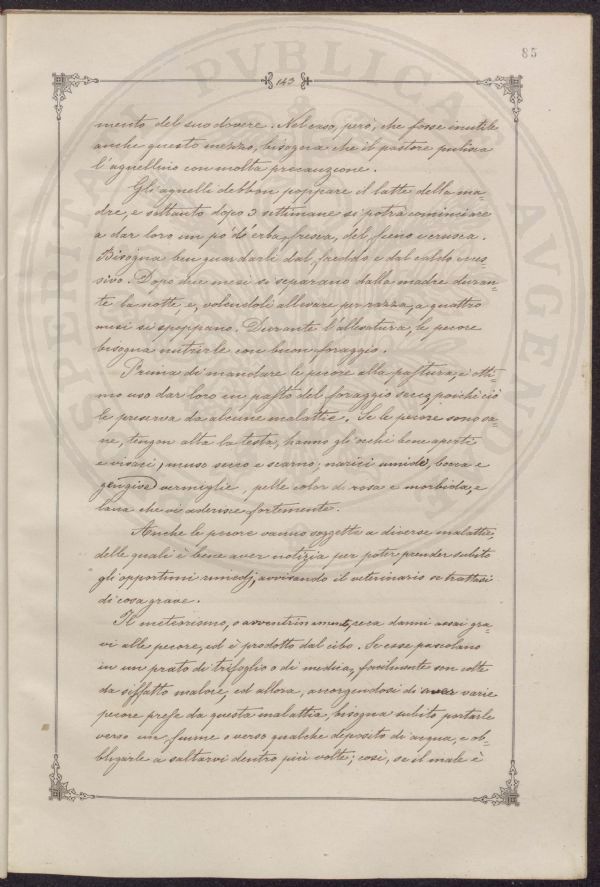 85
143
mento del suo dovere. Nel caso, però, che fosse inutile
anche questo mezzo, bisogna che il pastore pulisca
l'agnellino con molta precauzione.
Gli agnelli debbon poppare il latte della ma=
dre, e soltanto dopo 3 settimane si potrà cominciare
a dar loro un pò d'erba fresca, del fieno e crusca.
Bisogna ben guardarli dal freddo e dal caldo ecces=
sivo. Dopo due mesi si separano dalla madre duran=
te la notte, e, volendoli allevare per razza, a quattro
mesi si spoppano. Durante l'allevatura, le pecore
bisogna nutrirle con buon foraggio.
Prima di mandare le pecore alla pastura, è otti=
mo uso dar loro un pasto del foraggio secco, poichè ciò
le preserva da alcune malattie. Se le pecore sono sa=
ne, tengon alta la testa, hanno gli occhi bene aperti
e vivaci, muso secco e scarno, narici umide, bocca e
gengive vermiglie, pelle color di rosa e morbida, e
lana che vi aderisce fortemente.
Anche le pecore vanno soggette a diverse malattie,
delle quali è bene aver notizia per poter prender subito
gli opportuni rimedj, avvisando il veterinario se trattasi
di cosa grave.
Il meteorismo, o avventrinamento, reca danni assai gra=
vi alle pecore, ed è prodotto dal cibo. Se esse pascolano
in un prato di trifoglio o di medica, facilmente son colte
da siffatto malore, ed allora, accorgendosi di aver varie
pecore prese da questa malattia, bisogna subito portarle
verso un fiume o verso qualche deposito di acqua, e ob=
bligarle a saltarvi dentro più volte; così, se il male è
PVBLICAE
AVGENDO